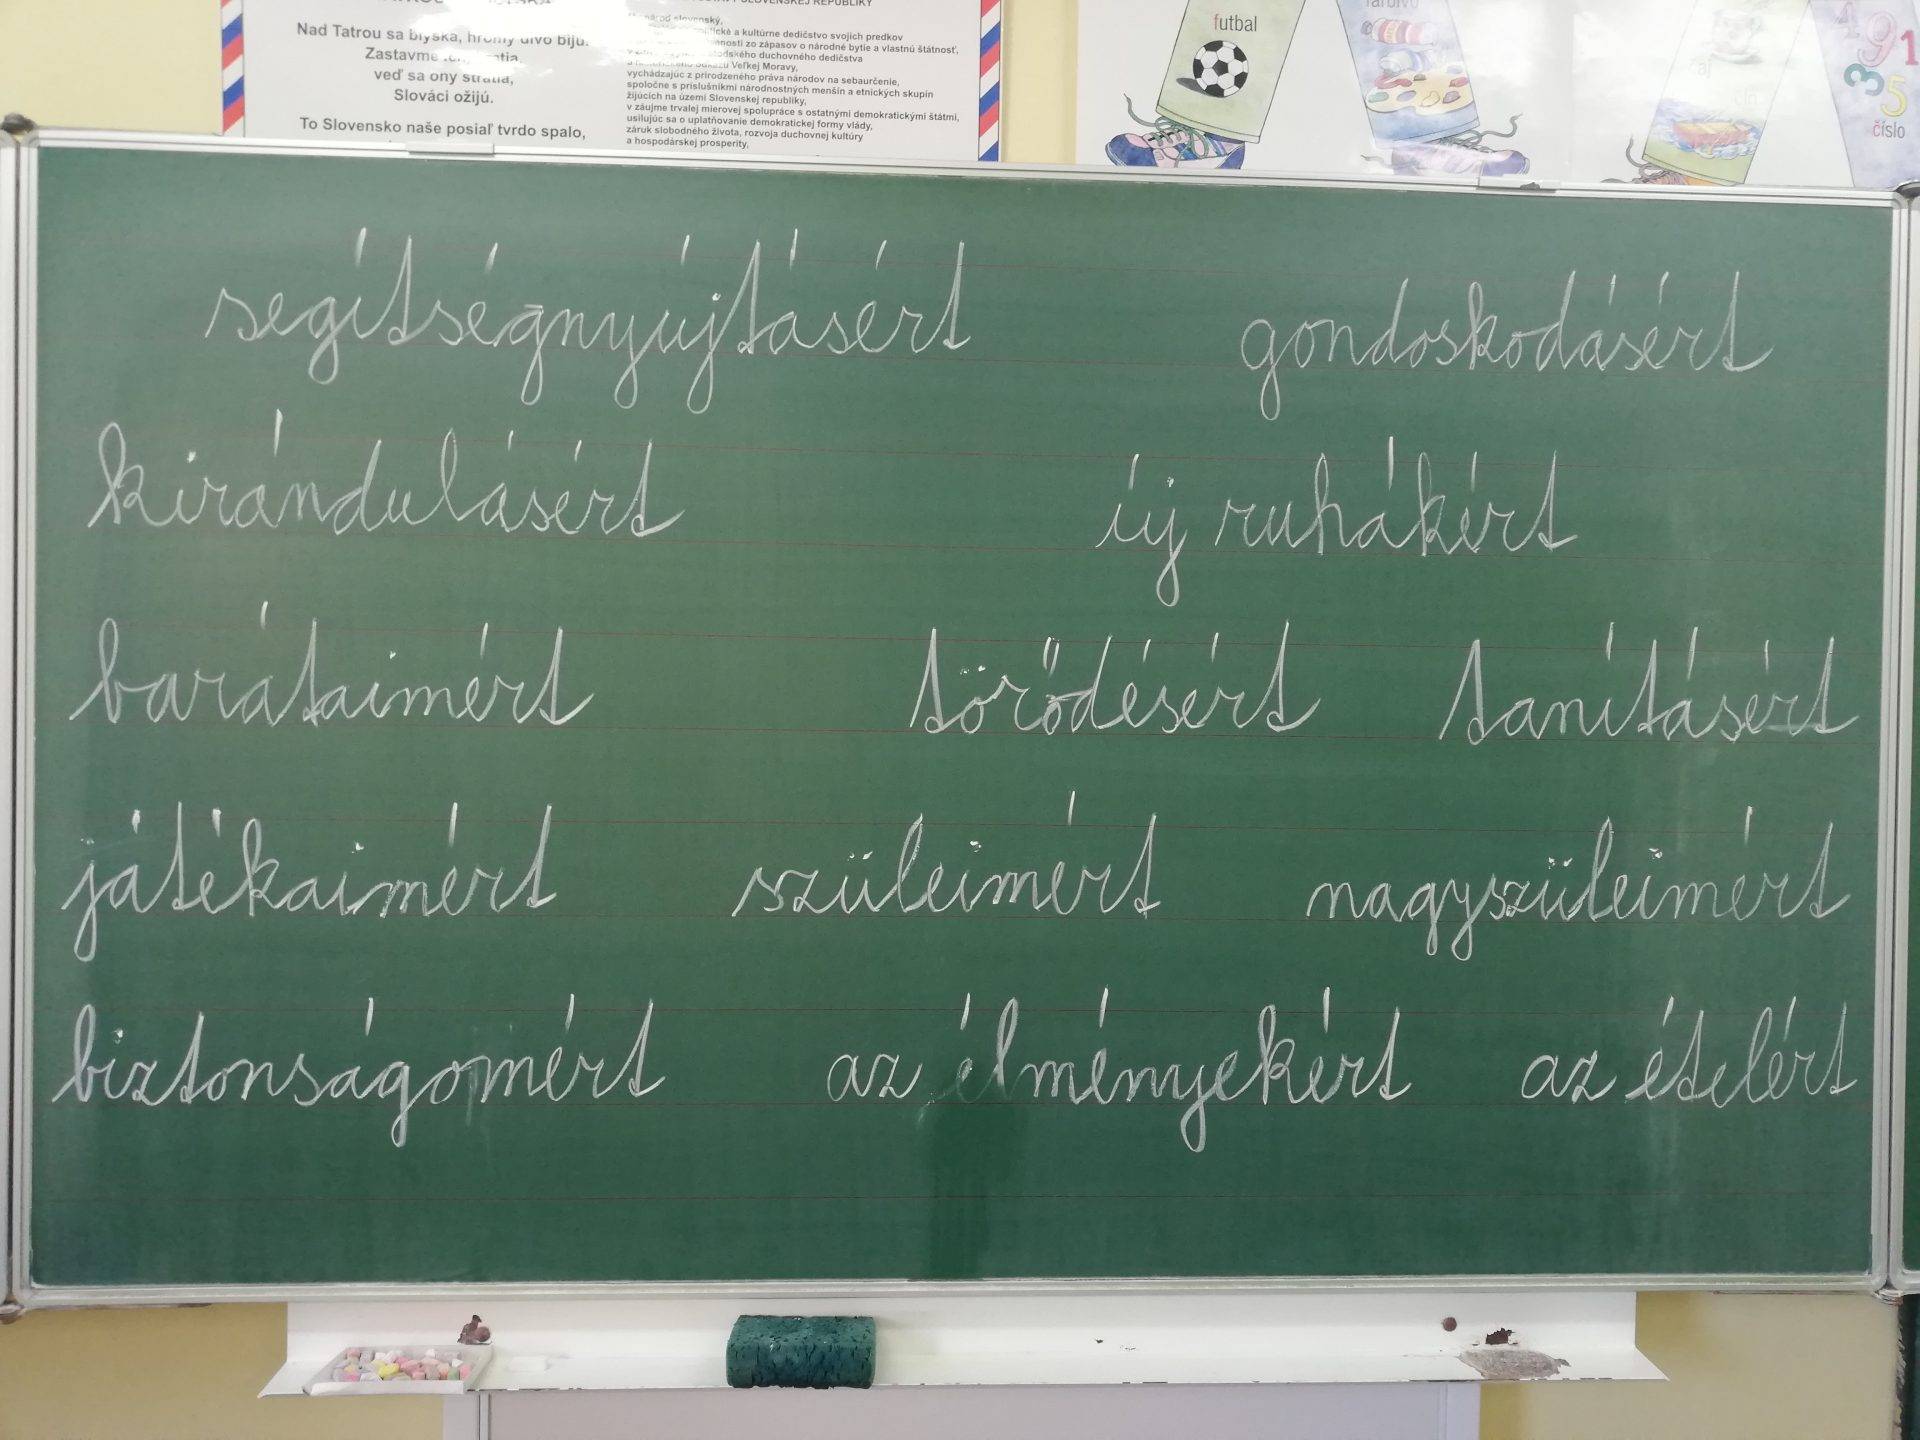 Nad Tatrou sa blýska, hromy divo bijú.
Zastavme
veď sa ony stratia,
Slováci ožijú.
To Slovensko naše posiaľ tvrdo spalo,
SLOVENSKEJ REPUBLIKY
národ slovenský,
a kultúrne dedičstvo svojich predkov
zo zápasov o národné bytie a vlastnú štátnosť,
duchovného dedičstva
Veľkej Moravy,
vychádzajúc z prirodzeného práva národov na sebaurčenie,
spoločne s príslušníkmi národnostných menšín a etnických skupín
žijúcich na území Slovenskej republiky,
v záujme trvalej mierovej spolupráce s ostatnými demokratickými štátmi,
usilujúc sa o uplatňovanie demokratickej formy vlády,
záruk slobodného života, rozvoja duchovnej kultúry
a hospodárskej prosperity,
futbal
farbivo
čaj
čln
1 9 1
3 5
číslo
segítségnyújtásért gondoskodásért
kirándulásért új ruhákért
barátaimért törődésért tanításért
játékaimért szüleimért nagyszüleimért
biztonságomért az élményekért az ételért